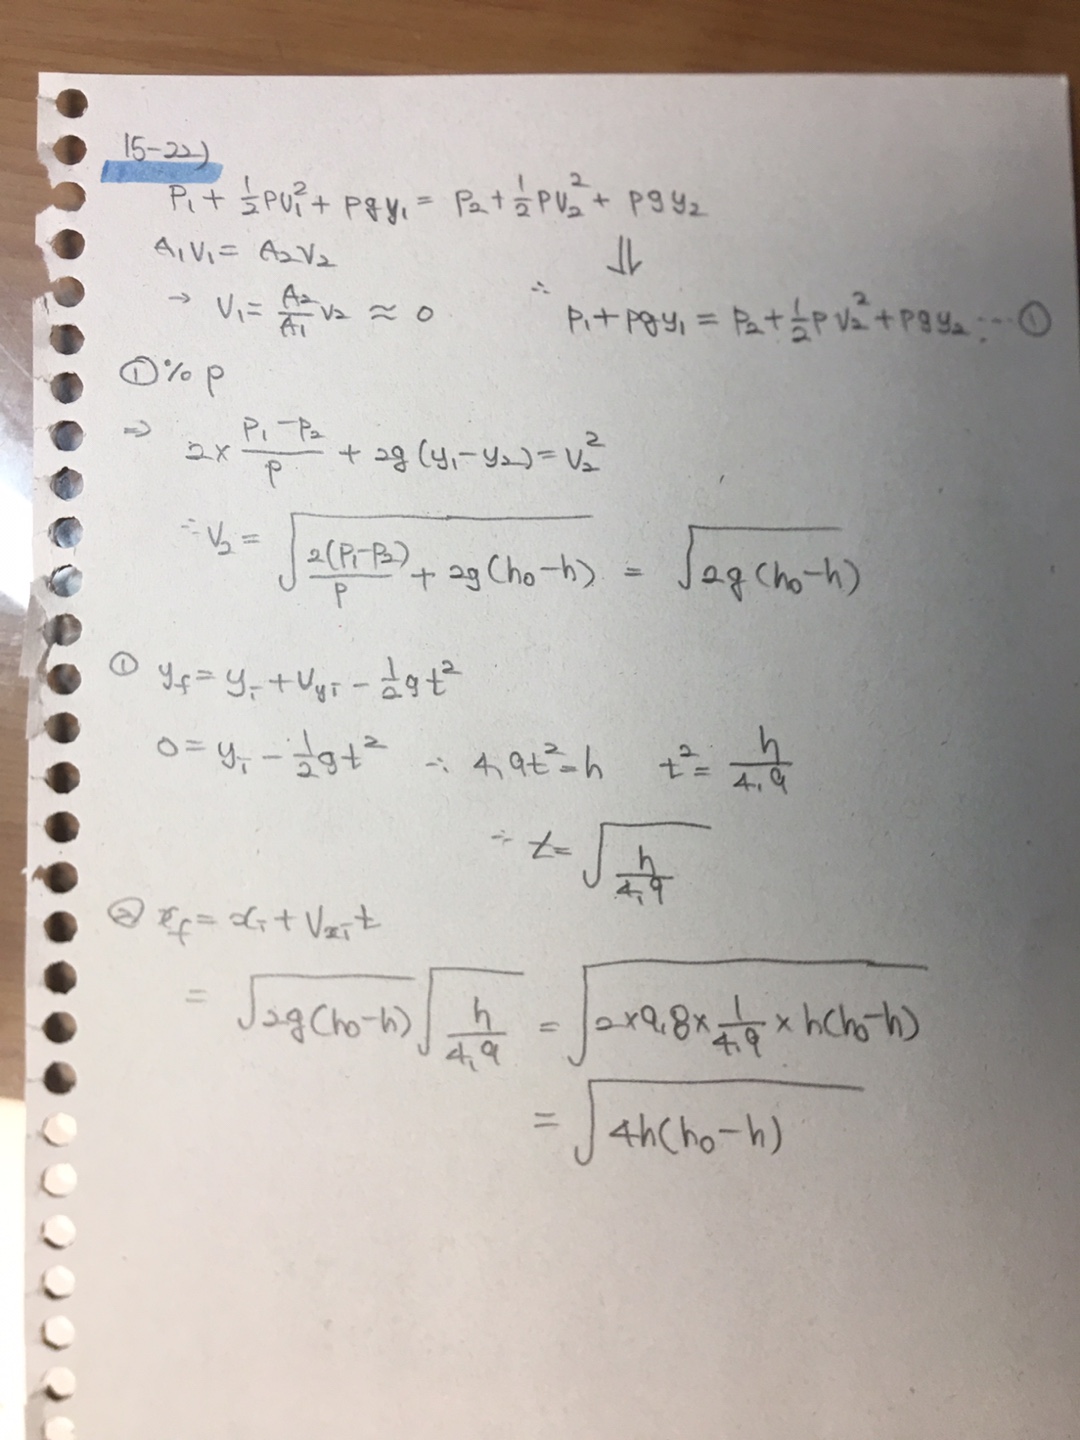 15-22)
P₁ + ½ρv₁² + ρgy₁ = P₂ + ½ρv₂² + ρgy₂
A₁V₁ = A₂V₂ ⇓
→ V₁ = A₂/A₁ V₂ ≈ 0 ∴ P₁ + ρgy₁ = P₂ + ½ρv₂² + ρgy₂ ... ①
① % ρ
⇒ 2 × (P₁ - P₂)/ρ + 2g(y₁ - y₂) = V₂²
∴ V₂ = √(2(P₁-P₂)/ρ + 2g(h₀-h)) = √(2g(h₀-h))
① y_f = y_i + v_yi - ½gt²
0 = y_i - ½gt² ∴ 4.9t² = h t² = h/4.9
∴ t = √(h/4.9)
② x_f = x_i + V_xi t
= √(2g(h₀-h)) √(h/4.9) = √(2×9.8×1/4.9×h(h₀-h))
= √(4h(h₀-h))